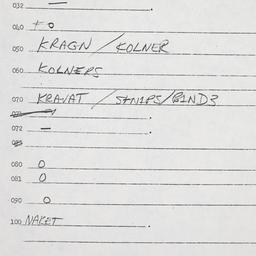 032 —
040 + 0
050 KRAGN / KOLNER
060 KOLNERS
070 KRAVAT / STNIPS/BIND3
072 —
080 0
081 0
090 0
100 NAKET